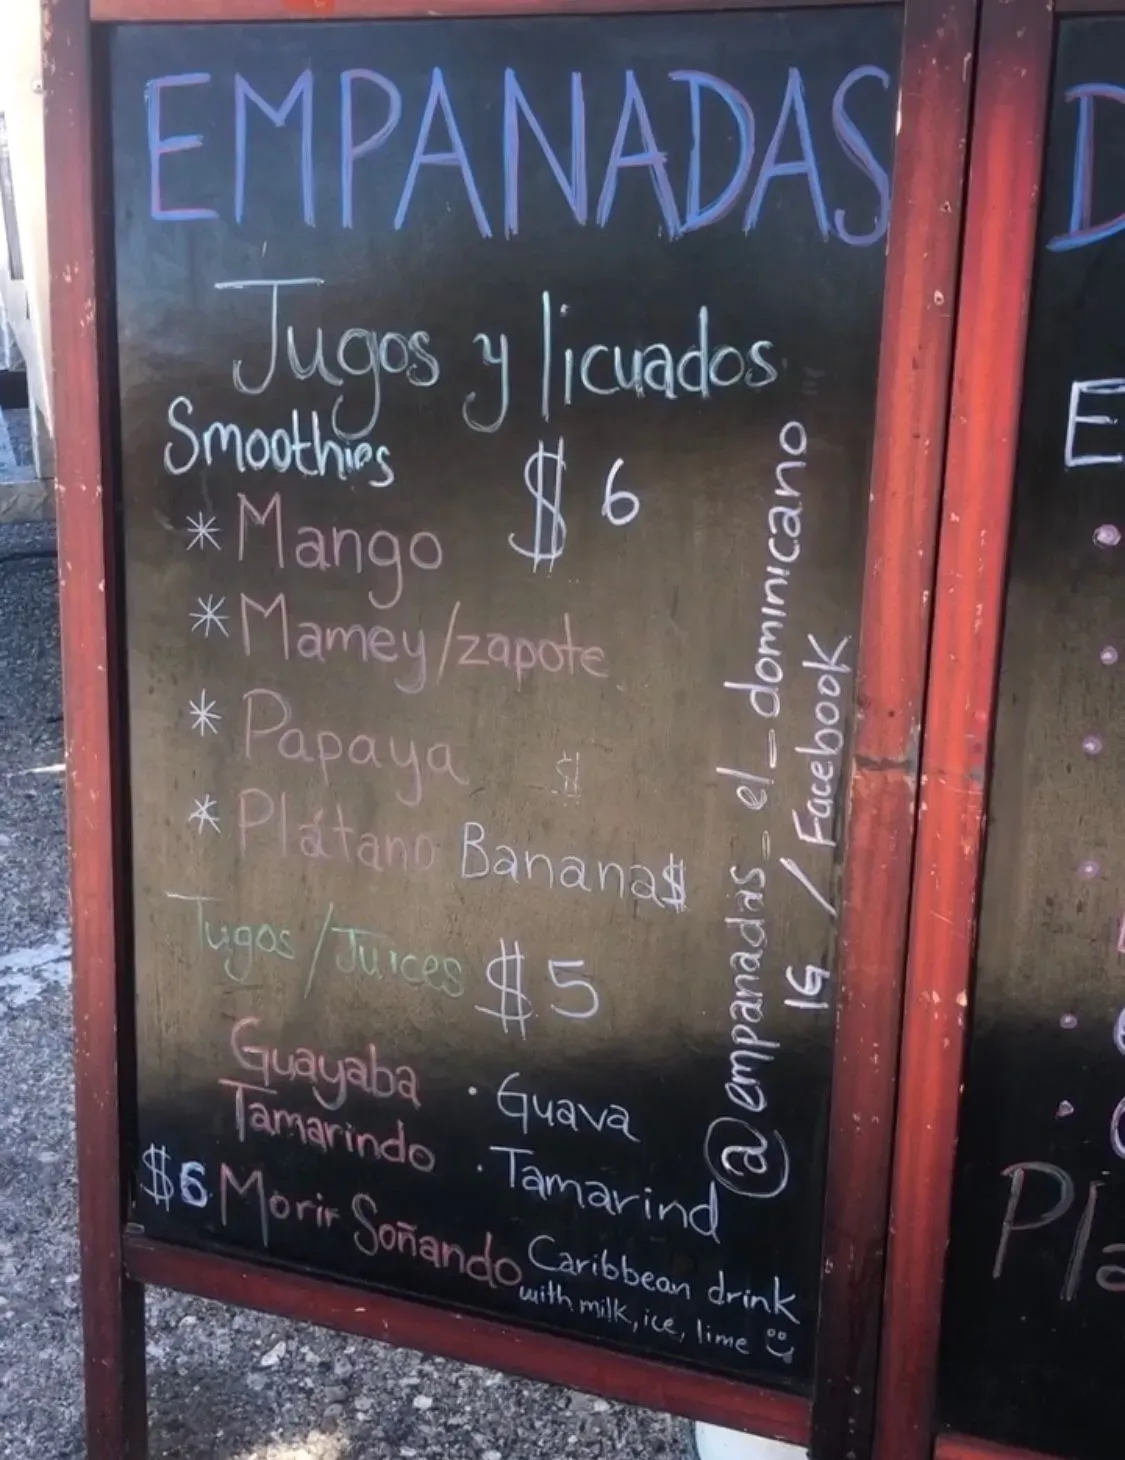 EMPANADAS
Jugos y licuados
Smoothies $6
* Mango
* Mamey/zapote
* Papaya
$
* Plátano Banana$
Jugos/Juices $5
Guayaba · Guava
Tamarindo · Tamarind
$6 Morir Soñando Caribbean drink
with milk, ice, lime
@empanadas_el_dominicano
IG / Facebook
D
E
Pla